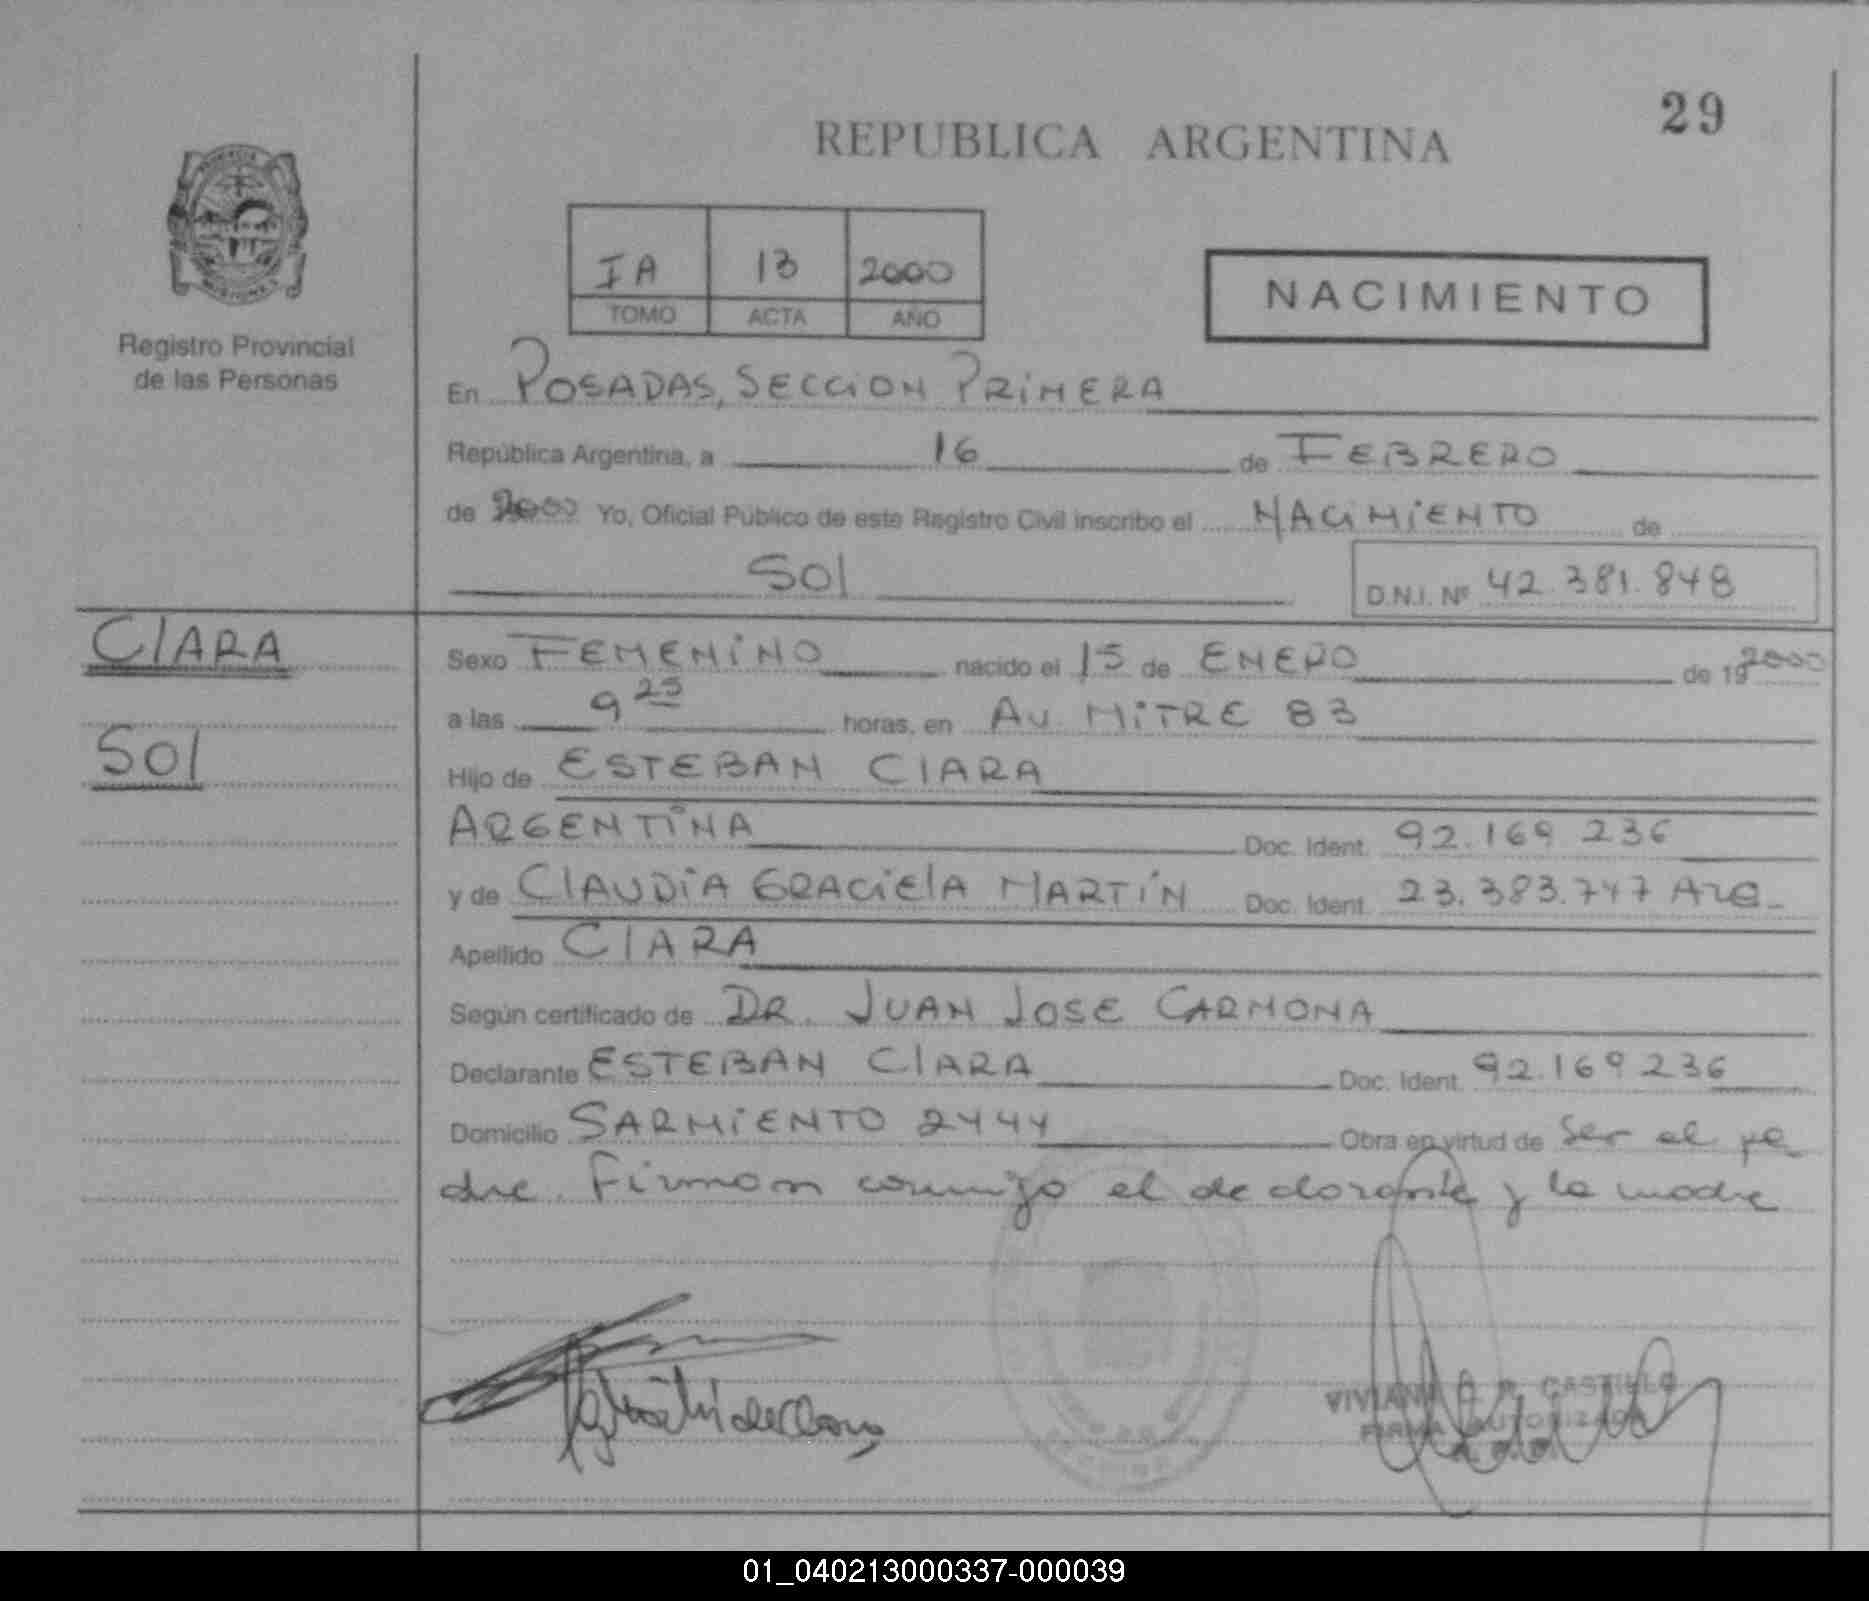 29
REPUBLICA ARGENTINA
PROVINCIA
MISIONES
Registro Provincial
de las Personas
IA 13 2000
TOMO ACTA AÑO
NACIMIENTO
En POSADAS, SECCION PRIMERA
República Argentina, a 16 de FEBRERO
de 2000 Yo, Oficial Público de este Registro Civil inscribo el NACIMIENTO de
SOl
D.N.I. Nº 42.381.848
ClARA
SOl
Sexo FEMENINO nacido el 15 de ENERO de 19 2000
a las 9 25 horas, en AV. MITRE 83
Hijo de ESTEBAN ClARA
ARGENTINA Doc. Ident. 92.169 236
y de ClAUDIA GRACIElA MARTÍN Doc. Ident. 23.383.747 ARG.
Apellido ClARA
Según certificado de DR. JUAN JOSE CARMONA
Declarante ESTEBAN ClARA Doc. Ident. 92.169 236
Domicilio SARMIENTO 2444 Obra en virtud de ser el pa
dre. Firman conmigo el declarante y la madre
VIVIANA CASTILLO
FIRMA AUTORIZADA
01_040213000337-000039